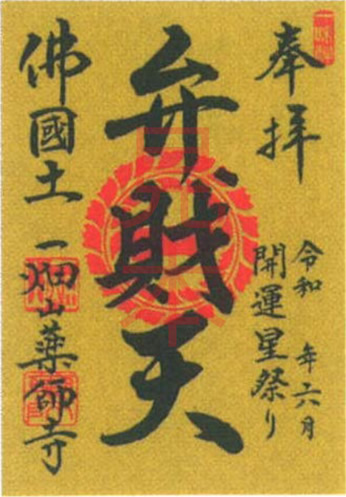 奉拝
令和 年六月
開運星祭り
弁財天
佛國土
一畑山薬師寺